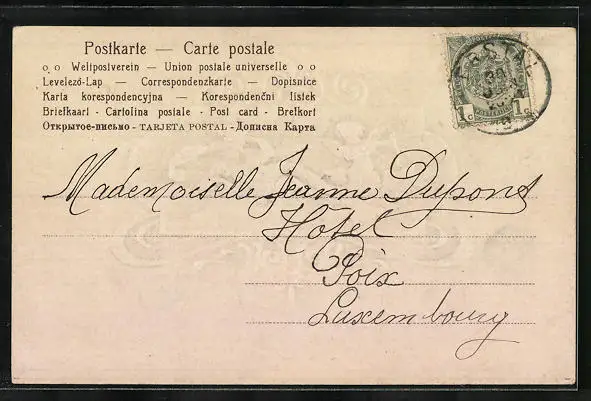 Postkarte — Carte postale
o o Weltpostverein — Union postale universelle o o
Levelező-Lap — Correspondenzkarte — Dopisnice
Karta korespondencyjna — Korespondenční lístek
Briefkaart - Cartolina postale - Post card - Brefkort
Открытое-письмо - TARJETA POSTAL - Дописна Карта
1c 1c
Mademoiselle Jeanne Dupont
Hotel
Poix
Luxembourg